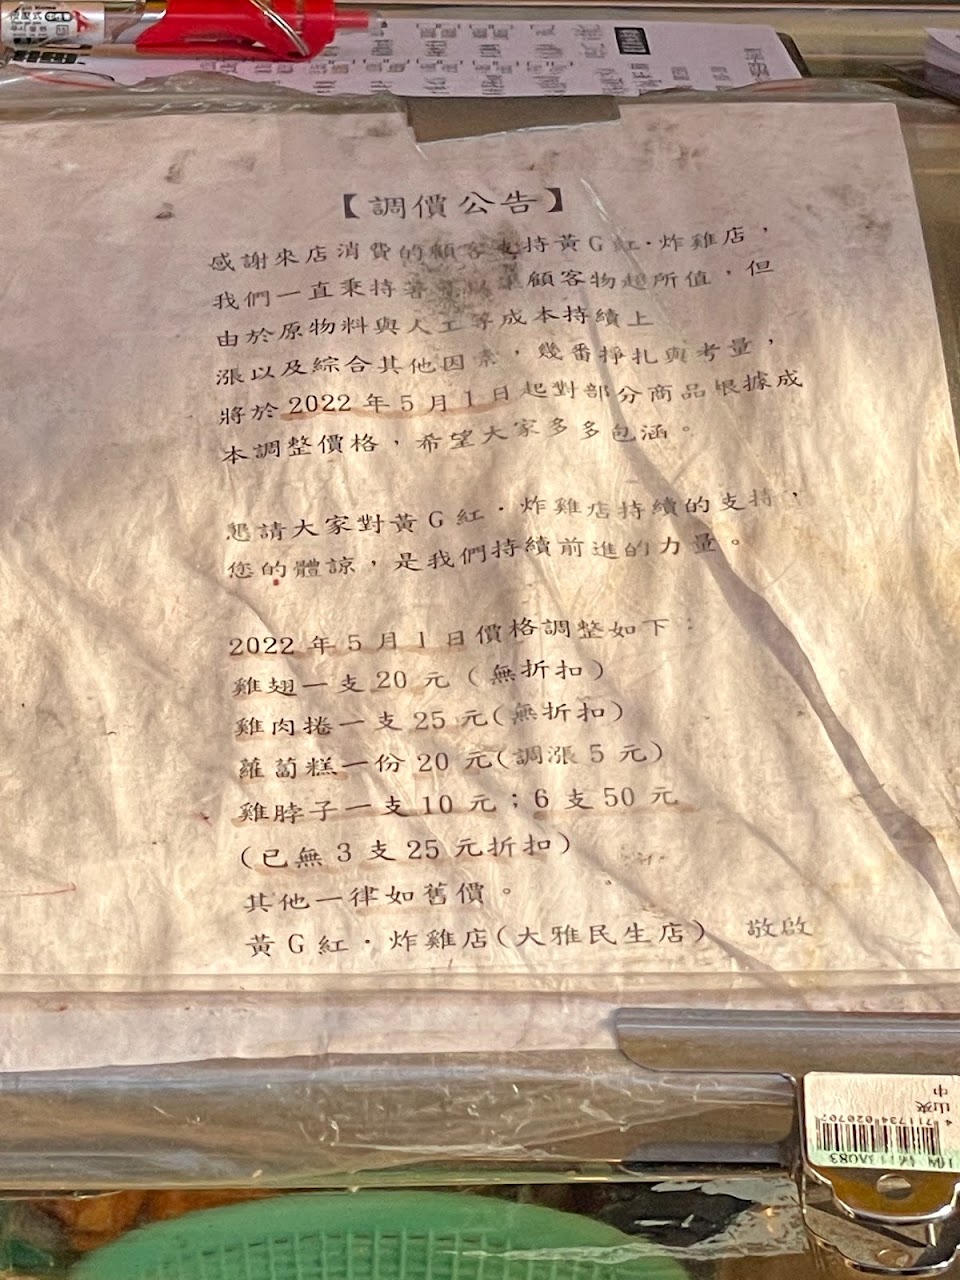 【調價公告】
感謝來店消費的顧客支持黃G紅·炸雞店，
我們一直秉持著 顧客物超所值，但
由於原物料與人工等成本持續上
漲以及綜合其他因素，幾番掙扎與考量，
將於2022年5月1日起對部分商品根據成
本調整價格，希望大家多多包涵。
懇請大家對黃G紅·炸雞店持續的支持，
您的體諒，是我們持續前進的力量。
2022年5月1日價格調整如下：
雞翅一支20元（無折扣）
雞肉捲一支25元(無折扣)
蘿蔔糕一份20元(調漲5元)
雞脖子一支10元；6支50元
(已無3支25元折扣)
其他一律如舊價。
黃G紅·炸雞店(大雅民生店) 敬啟
中
山夾
4 711734 020707